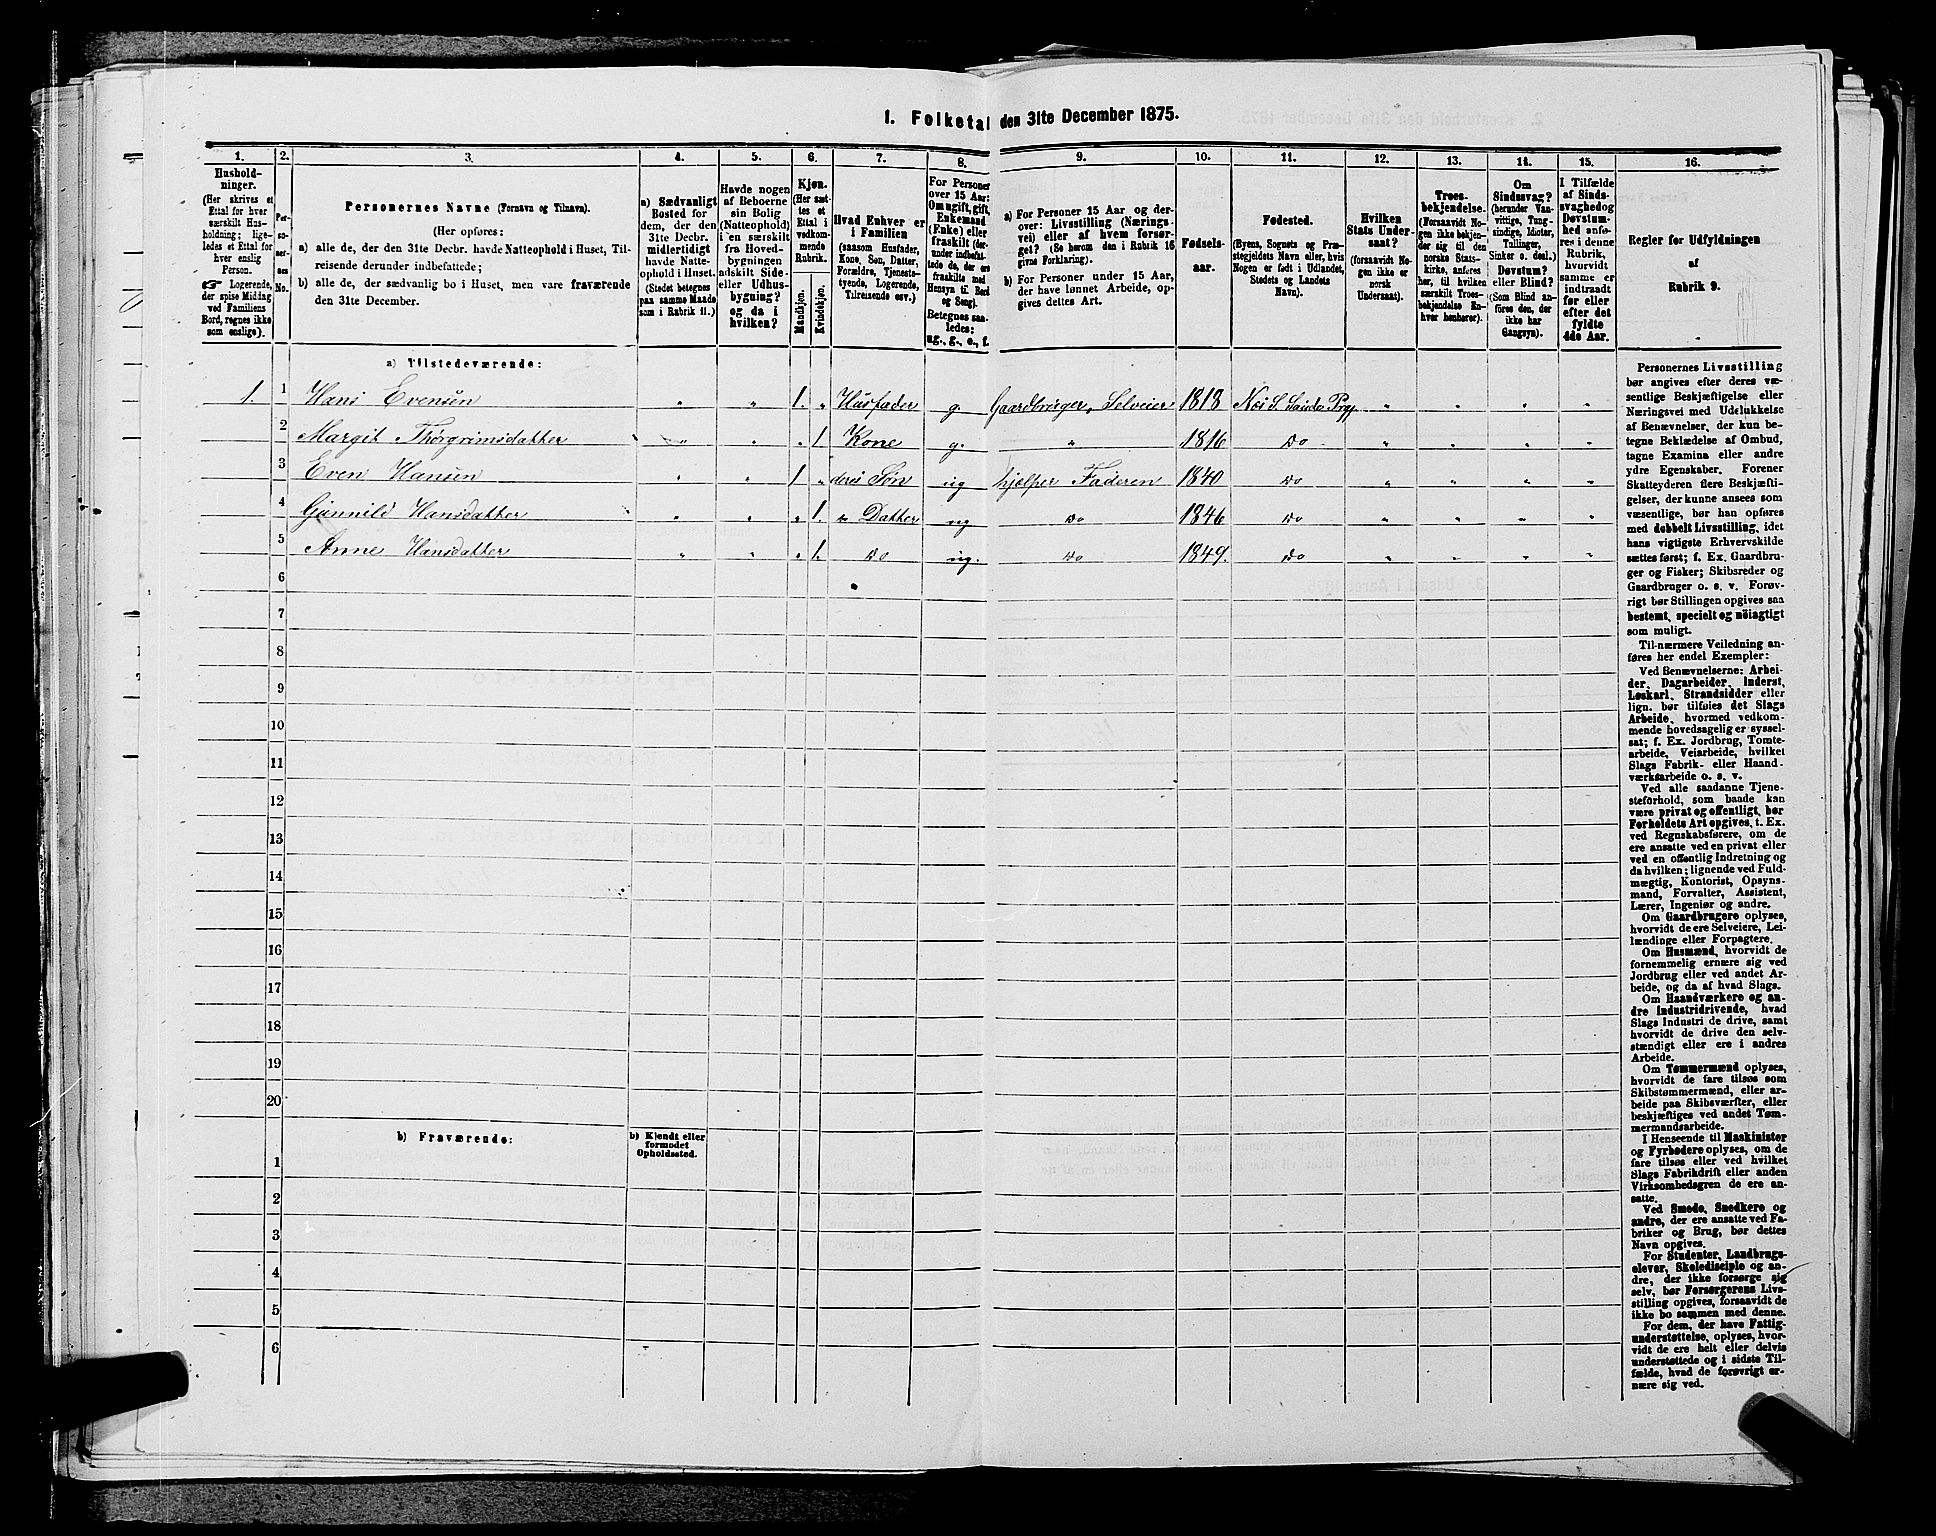 1. Folketal den 31te December 1875.
1. 2. 3. 4. 5. 6. 7. 8. 9. 10. 11. 12. 13. 14. 15. 16.
Hushold-
ninger.
(Her skrives et
Ettal for hver
særskilt Hus-
holdning; lige-
ledes et Ettal
for hver enslig
Person.
☞ Logerende,
der spise Middag
ved Familiens
Bord, regnes ikke
som enslige).
Per-
so-
ner-
nes
No.
Personernes Navne (Fornavn og Tilnavn).
(Her opføres:
a) alle de, der den 31te Decbr. havde Natteophold i Huset, Til-
reisende derunder indbefattede;
b) alle de, der sædvanlig bo i Huset, men vare fraværende
den 31te December.
a) Sædvanligt
Bosted for
dem, der den
31te Decbr.
midlertidigt
havde Natte-
ophold i Huset.
(Stedet betegnes
paa samme Maade
som i Rubrik 11.)
Havde nogen
af Beboerne
sin Bolig
(Natteophold)
i en særskilt
fra Hoved-
bygningen
adskilt Side-
eller Udhus-
bygning?
og da i
hvilken?
Kjøn.
(Her sæt-
tes et
Ettal i
vedkom-
mende
Rubrik.
Mandkjøn.
Kvindekjøn.
Hvad Enhver er
i Familien
(saasom Husfader,
Kone, Søn, Datter,
Forældre, Tjeneste-
tyende, Logerende,
Tilreisende osv.)
For Personer
over 15 Aar:
Om ugift, gift,
Enkemand
(Enke) eller
fraskilt (der-
under indbefat-
tede de, der ere
fraskilte med
Hensyn til Bord
og Seng).
Betegnes saa-
ledes:
ug., g., e., f.
a) For Personer 15 Aar og der-
over: Livsstilling (Nærings-
vei) eller af hvem forsør-
get? (Se herom den i Rubrik 16
givne Forklaring).
b) For Personer under 15 Aar,
der have lønnet Arbeide, op-
gives dettes Art.
Fødsels-
aar.
Fødested.
(Byens, Sognets og Præ-
stegjeldets Navn eller, hvis
Nogen er født i Udlandet,
Stedets og Landets
Navn).
Hvilken
Stats Under-
saat?
(forsaavidt No-
gen ikke er
norsk
Undersaat).
Troes-
bekjendelse.
(Forsaavidt No-
gen ikke bekjen-
der sig til den
norske Stats-
kirke, anføres
her, til hvilken
særskilt Troes-
bekjendelse En-
hver henhører).
Om
Sindssvag?
(herunder Van-
vittige, Idioter,
Tullinger,
Sinker o. desl.)
Døvstum?
eller Blind?
(Som Blind an-
føres den, der
ikke har
Gangsyn).
I Tilfælde
af Sinds-
svaghed og
Døvstum-
hed anfø-
res i denne
Rubrik,
hvorvidt
samme er
indtraadt
før eller
efter det
fyldte
4de Aar.
Regler for Udfyldningen
af
Rubrik 9.
a) Tilstedeværende:
1. 1 Hans Evensen " " 1. " Husfader g. Gaardbruger, Selveier 1818 " " " "
2 Margit Thorgrimsdatter " " " 1 Kone g. " 1816 Do " " " "
3 Even Hansen " " 1 " deres Søn ug hjælper Faderen 1840 Do " " " "
4 Gunnild Hansdatter " " " 1. " Datter ug Do 1846 Do " " " "
5 Anne Hansdatter " " " 1. Do ug. Do 1849. Do " " " "
6
7
8
9
10
11
12
13
14
15
16
17
18
19
20
b) Fraværende:
b) Kjendt eller
formodet
Opholdssted.
1
2
3
4
5
6
Personernes Livsstilling
bør angives efter deres væ-
sentlige Beskjæftigelse eller
Næringsvei med Udelukkelse
af Benævnelser, der kun be-
tegne Beklædelse af Ombud,
tagne Examina eller andre
ydre Egenskaber. Forener
Skatteyderen flere Beskjæfti-
gelser, der kunne ansees som
væsentlige, bør han opføres
med dobbelt Livsstilling, idet
hans vigtigste Erhvervskilde
sættes først; f. Ex. Gaardbru-
ger og Fisker; Skibsreder og
Gaardbruger o. s. v. Forøv-
rigt bør Stillingen opgives saa
bestemt, specielt og nöiagtigt
som muligt.
Til nærmere Veiledning an-
føres her endel Exempler:
Ved Benævnelserne: Arbei-
der, Dagarbeider, Inderst,
Løskarl, Strandsidder eller
lign. bør tilføies det Slags
Arbeide, hvormed vedkom-
mende hovedsagelig er syssel-
sat; f. Ex. Jordbrug, Tomte-
arbeide, Veiarbeide, hvilket
Slags Fabrik- eller Haand-
værksarbeide o. s. v.
Ved alle saadanne Tjene-
steforhold, som baade kan
være privat og offentligt, bør
Forholdets Art opgives, t. Ex.
ved Regnskabsførere, om de
ere ansatte ved en privat eller
ved en offentlig Indretning og
da hvilken; lignende ved Fuld-
mægtig, Kontorist, Opsyns-
mand, Forvalter, Assistent,
Lærer, Ingeniør og andre.
Om Gaardbrugere oplyses,
hvorvidt de ere Selveiere, Lei-
lændinge eller Forpagtere.
Om Husmænd, hvorvidt de
fornemmelig ernære sig ved
Jordbrug eller ved andet Ar-
beide, og da af hvad Slags.
Om Haandværkere og an-
dre Industridrivende, hvad
Slags Industri de drive, samt
hvorvidt de drive den selv-
stændigt eller ere i andres
Arbeide.
Om Tømmermænd oplyses,
hvorvidt de fare tilsøs som
Skibstømmermænd, eller ar-
beide paa Skibsværfter, eller
beskjæftiges ved andet Tøm-
mermandsarbeide.
I Henseende til Maskinister
og Fyrbødere oplyses, om de
fare tilsøs eller ved hvilket
Slags Fabrikdrift eller anden
Virksomhedsgren de ere an-
satte.
Ved Smede, Snedkere og
andre, der ere ansatte ved Fa-
briker og Brug, bør dettes
Navn opgives.
For Studenter, Landbrugs-
elever, Skoledisciple og an-
dre, der ikke forsørge sig
selv, bør Forsørgerens Livs-
stilling opgives, forsaavidt de
ikke bo sammen med denne.
For dem, der have Fattig-
understøttelse, oplyses, hvor-
vidt de ere helt eller delvis
understøttede og i sidste Til-
fælde, hvad de forøvrigt er-
nære sig ved.